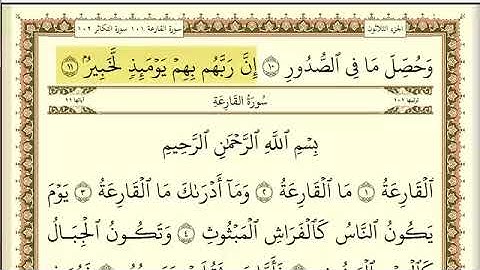 الجزء الثلاثون سورة القارعة ١٠١ سورة التكاثر ١٠٢
وَحُصِّلَ مَا فِي ٱلصُّدُورِ ١٠ إِنَّ رَبَّهُم بِهِمْ يَوْمَئِذٍ لَّخَبِيرٌۢ ١١
سُورَةُ القَارِعَةِ
بِسْمِ ٱللَّهِ ٱلرَّحْمَٰنِ ٱلرَّحِيمِ
ٱلْقَارِعَةُ ١ مَا ٱلْقَارِعَةُ ٢ وَمَآ أَدْرَىٰكَ مَا ٱلْقَارِعَةُ ٣ يَوْمَ
يَكُونُ ٱلنَّاسُ كَٱلْفَرَاشِ ٱلْمَبْثُوثِ ٤ وَتَكُونُ ٱلْجِبَالُ